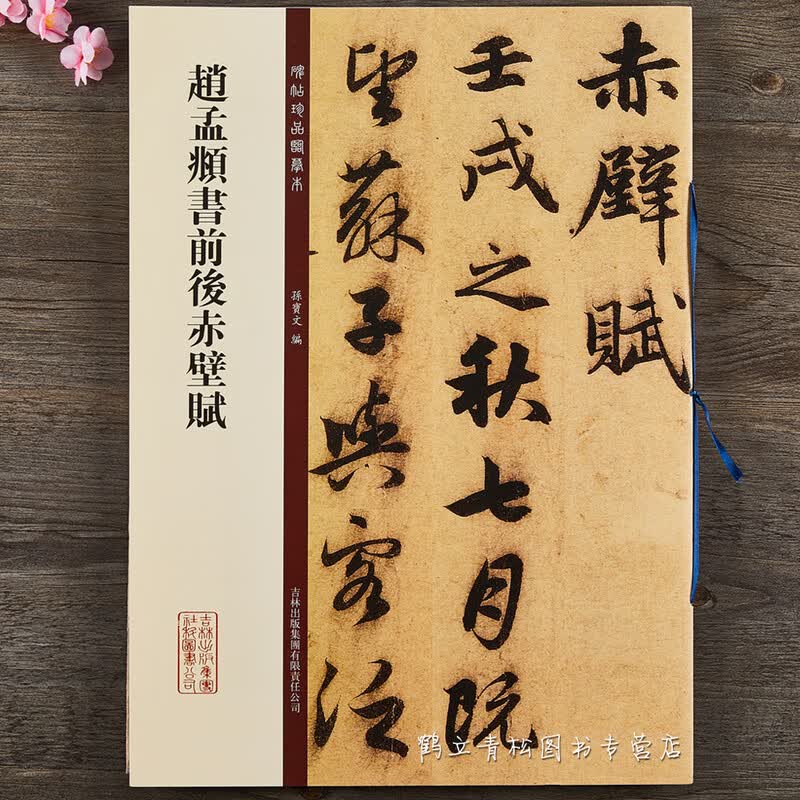 赤壁賦
壬戌之秋七月既
望蘇子與客泛
碑帖珍品臨摹本
孫寶文 編
吉林出版集團有限責任公司
趙孟頫書前後赤壁賦
吉林出版集團
社科圖書公司
鹤立青松图书专营店